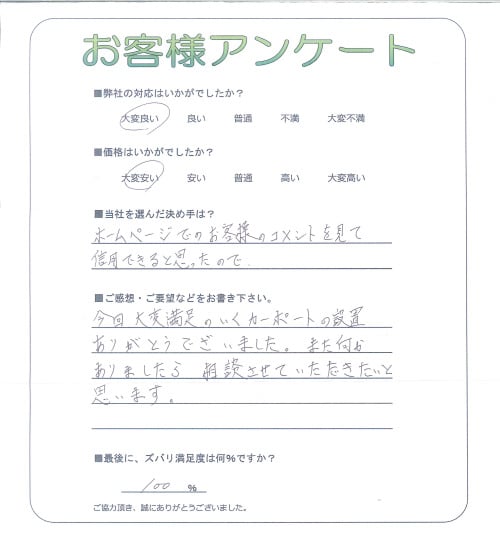 お客様アンケート
■弊社の対応はいかがでしたか？
大変良い 良い 普通 不満 大変不満
■価格はいかがでしたか？
大変安い 安い 普通 高い 大変高い
■当社を選んだ決め手は？
ホームページでのお客様のコメントを見て
信用できると思ったので.
■ご感想・ご要望などをお書き下さい。
今回大変満足のいくカーポートの設置
ありがとうございました。また何か
ありましたら 相談させていただきたいと
思います。
■最後に、ズバリ満足度は何%ですか？
100 %
ご協力頂き、誠にありがとうございました。